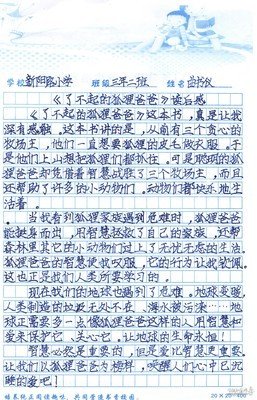 学校新阳路小学 班级三年二班 姓名
《了不起的狐狸爸爸》读后感
《了不起的狐狸爸爸》这本书,真是让我
深有感触。这本书讲的是,从前有三个贪心的
牧场主,他们一直想要狐狸的皮毛做衣服。于
是他们上山想把狐狸们都抓住。可是聪明的狐
狸爸爸却凭借着智慧战胜了三个牧场主,而且
还帮助了许多的小动物们。动物们都快乐地生
活着。
当我看到狐狸家族遇到危难时,狐狸爸爸
能挺身而出,用智慧拯救了自己的家族,还帮
森林里其它的小动物们过上了无忧无虑的生活。
狐狸爸爸的智慧使我叹服,它的行为让我钦佩。
这也正是我们人类所要学习的。
现在我们的地球也遇到了危难。地球变暖、
人类制造的垃圾无处不在、海水被污染……地
球正需要多一点像狐狸爸爸这样的人用智慧和
爱来保护它、关心它。让地球的生命永恒!
智慧必然是重要的,但是爱比智慧更重要,
让我们以狐狸爸爸为榜样,唤醒人们心中已沉
睡的爱吧!
培养纯正阅读趣味,共同营造书香校园。 20×20=400